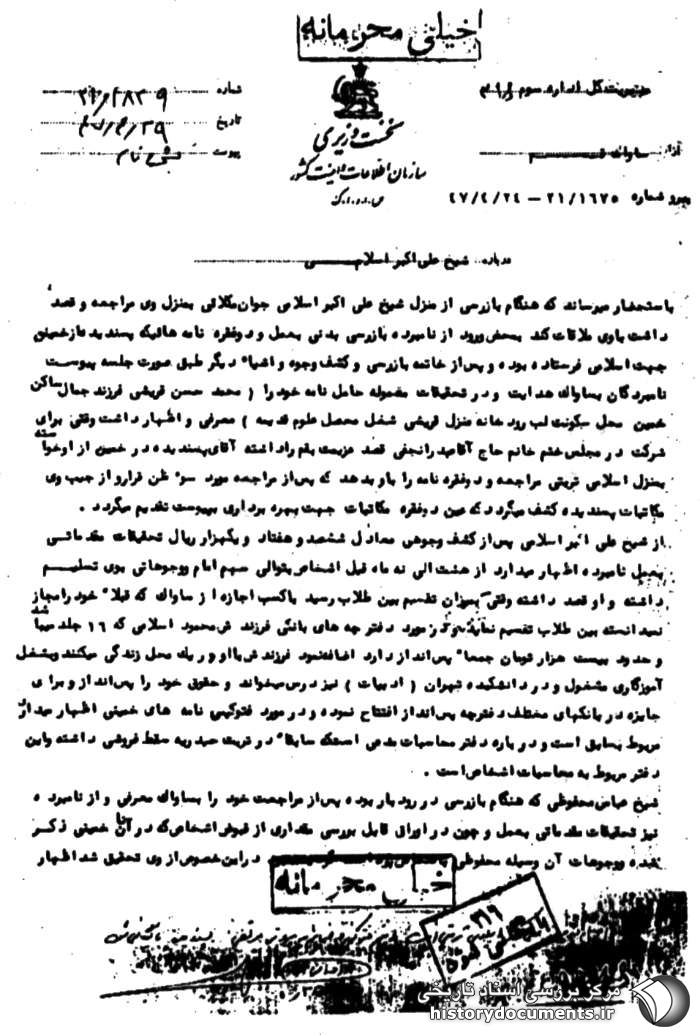 خیلی محرمانه
مدیریت کل اداره سوم
شماره
نخست وزیری
تاریخ
سازمان اطلاعات و امنیت کشور
پیوست
س.ا.و.ا.ک
از ساواک قم
پیرو شماره ۲۱/۱۶۷۵ – ۴۷/۴/۲۴
درباره شیخ علی اکبر اسلامی
باستحضار میرساند که هنگام بازرسی از منزل شیخ علی اکبر اسلامی جوان مکلائی بمنزل وی مراجعه و قصد
داشت باوی ملاقات کند بمحض ورود از نامبرده بازرسی بدنی بعمل و دوفقره نامه هائیکه پسندیده از خمین
جهت اسلامی فرستاده بوده و پس از خاتمه بازرسی و کشف وجوه و اشیاء دیگر طبق صورت جلسه پیوست
نامبردگان بساواک هدایت و در تحقیقات معموله حامل نامه خود را ( محمد حسن قریشی فرزند جمال ساکن
خمین محل سکونت لب رودخانه منزل قریشی شغل محصل علوم قدیمه ) معرفی و اظهار داشت وقتی برای
شرکت در مجلس ختم خانم حاج آقا میدرانجفی قصد عزیمت بقم را داشته آقای پسندیده در خمین از او خواسته
بمنزل اسلامی تربتی مراجعه و دوفقره نامه را باو بدهد که پس از مراجعه مورد سوء ظن قرار و از جیب وی
مکاتبات پسندیده کشف میگردد که عین دوفقره مکاتبات جهت بهره برداری بپیوست تقدیم میگردد .
از شیخ علی اکبر اسلامی پس از کشف وجوهی معادل ششصد و هفتاد و یکهزار ریال تحقیقات مقدماتی
بعمل نامبرده اظهار میدارد از هشت الی نه ماه قبل اشخاص بتوالی سهم امام و وجوهاتی بوی تسلیم
داشته و او قصد داشته وقتی بمیزان تقسیم بین طلاب رسید باکسب اجازه از ساواک که قبلا" خود را مجاز
نمیدانسته بین طلاب تقسیم نماید در مورد دفترچه های بانکی فرزندش محمود اسلامی که ۱۶ جلد میباشد
و حدود بیست هزار تومان جمعا" پس انداز دارد اضافه نمود فرزندش با او در یک محل زندگی میکنند و بشغل
آموزگاری مشغول و در دانشکده تهران ( ادبیات ) نیز درس میخواند و حقوق خود را پس انداز و برای
جایزه در بانکهای مختلف دفترچه پس انداز افتتاح نموده و در مورد فتوکپی نامه های خمینی اظهار میدارد
مربوط بسابق است و درباره دفتر محاسبات مدعی است که سابقا" در تربت حیدریه سقط فروشی داشته و این
دفتر مربوط به محاسبات اشخاص است .
شیخ عباس محفوظی که هنگام بازرسی در رودبار بوده پس از مراجعت خود را بساواک معرفی و از نامبرده
نیز تحقیقات مقدماتی بعمل و چون در اوراق قابل بررسی مقداری از قبوض اشخاص که در آن خمینی ذکر
شده و وجوهات آن وسیله محفوظی در این خصوص از وی تحقیق شد اظهار
خیلی محرمانه
مرکز بررسی اسناد تاریخی
historydocuments.ir